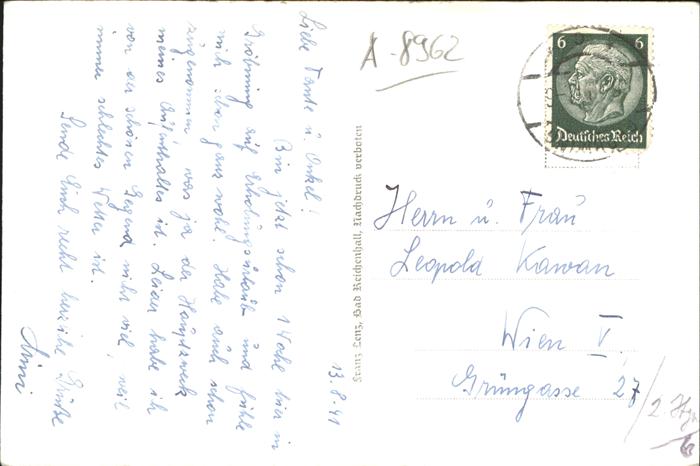 Liebe Tante u. Onkel!
Bin jetzt schon 1 Woche hier in
Gröbming auf Erholungsurlaub und fühle
mich schon ganz wohl. Habe auch schon
zugenommen was ja der Hauptzweck
meines Aufenthaltes ist. Leider habe ich
von der schönen Gegend nicht viel, weil
immer schlechtes Wetter ist.
Sende Euch recht herzliche Grüße
Mimi
13.8.41
Franz Lenz, Bad Reichenhall, Nachdruck verboten
A-8962
6 6
Deutsches Reich
Herrn u. Frau
Leopold Kawan
Wien V.
Grüngasse 27
/2. Hg.
6